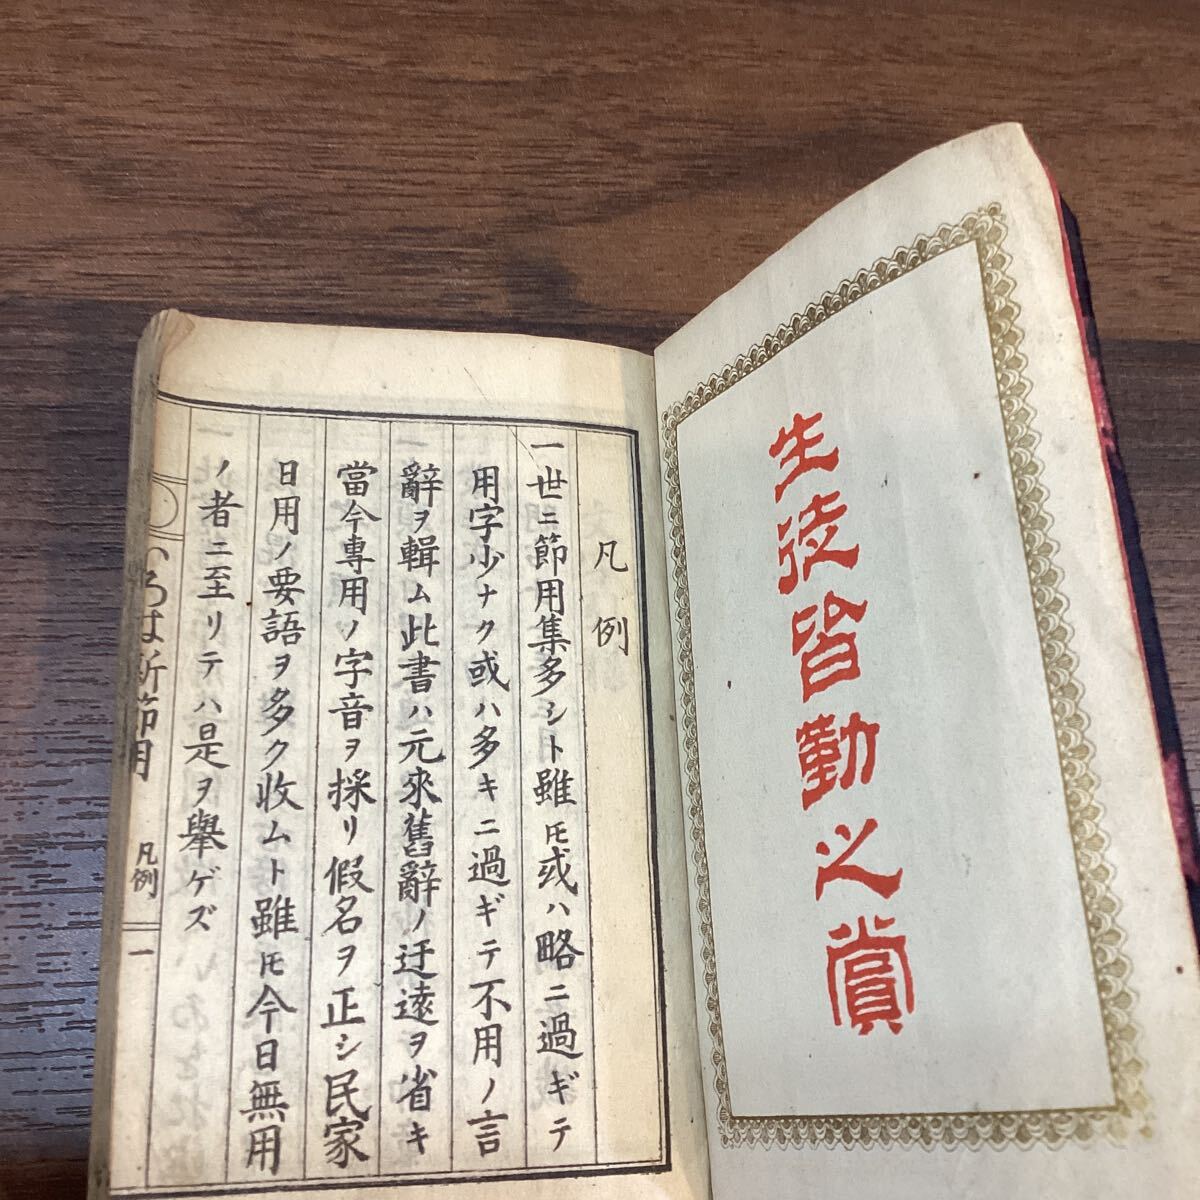 生徒皆勤之賞
凡例
一世ニ節用集多シト雖𪜈或ハ略ニ過ギテ
用字少ナク或ハ多キニ過ギテ不用ノ言
辭ヲ輯ム此書ハ元來舊辭ノ迂遠ヲ省キ
當今専用ノ字音ヲ採リ假名ヲ正シ民家
日用ノ要語ヲ多ク收ムト雖𪜈今日無用
ノ者ニ至リテハ是ヲ舉ゲズ
いろは新節用 凡例 一